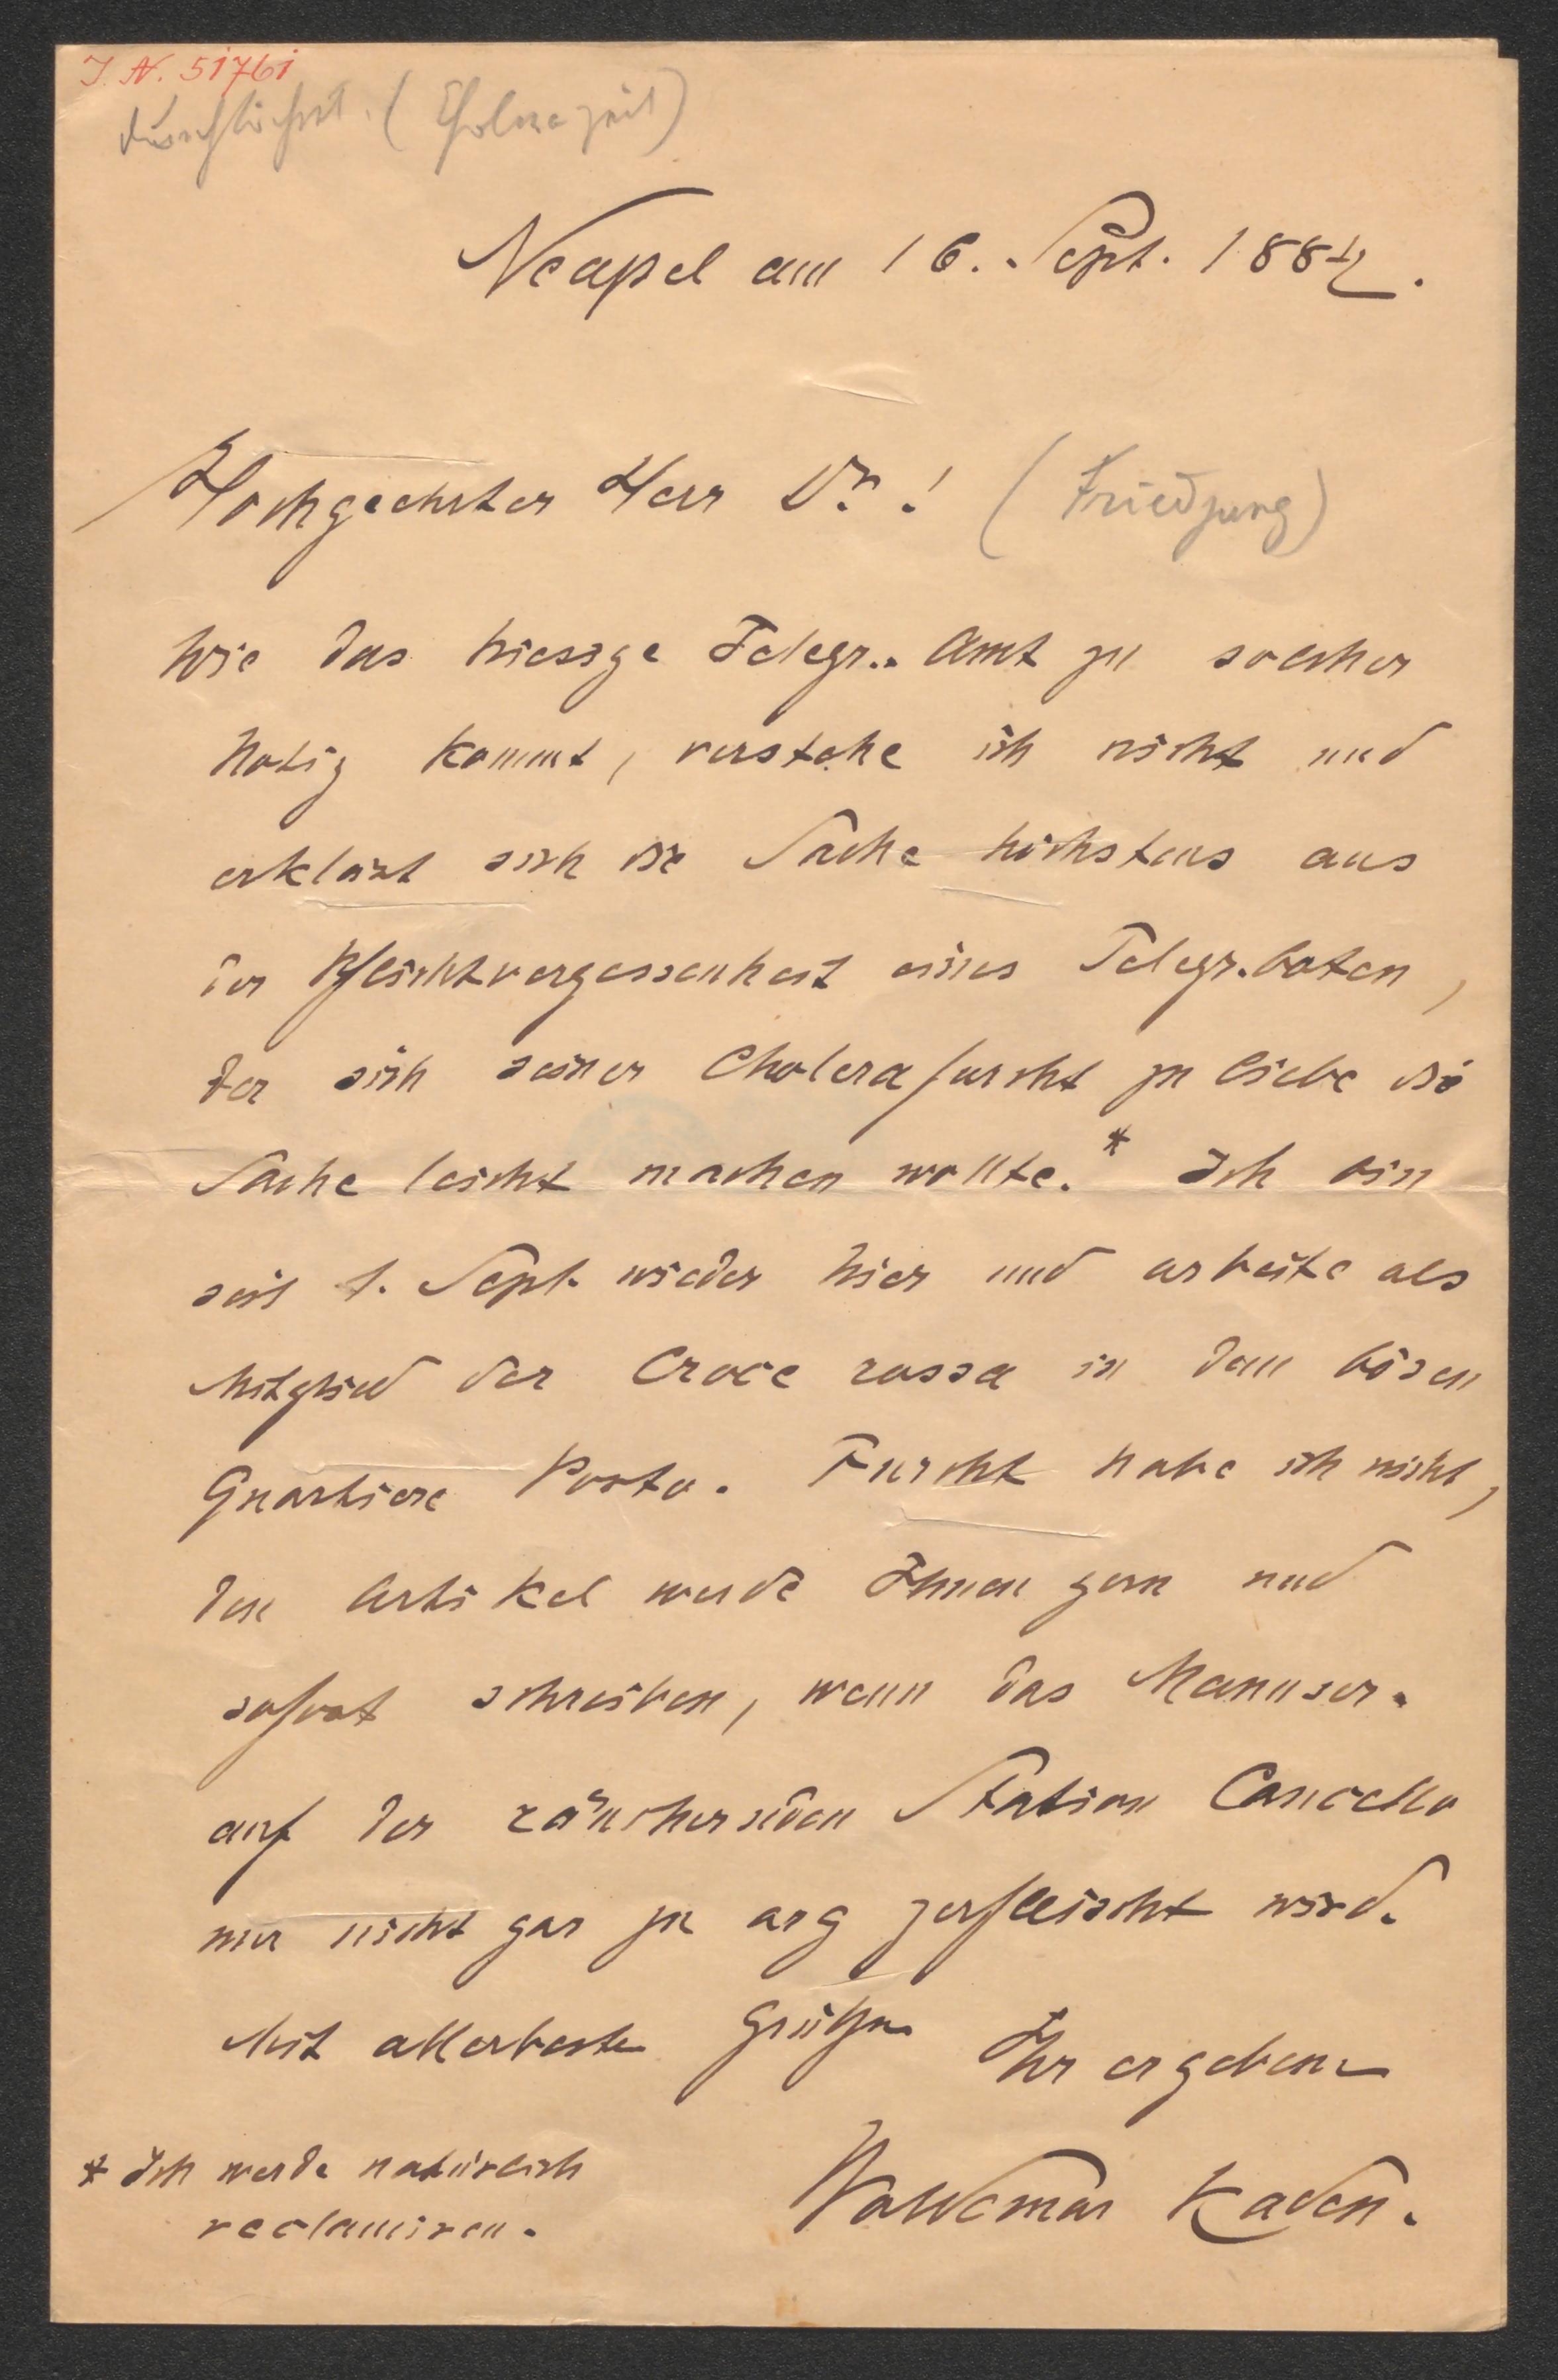 J. N. 51761
durchlöchert. (Cholerazeit)
Neapel am 16. Sept. 1884.
Hochgeehrter Herr Dr.! (Friedjung)
Wie das hiesige Telegr.. Amt zu solcher
Notiz kommt, verstehe ich nicht und
erklärt sich die Sache höchstens aus
der Pflichtvergessenheit eines Telegr.boten,
der sich seiner Cholerafurcht zu liebe die
Sache leicht machen wollte.* Ich bin
seit 1. Sept. wieder hier und arbeite als
Mitglied der Croce rossa in dem bösen
Quartiere Porto. Furcht habe ich nicht,
den Artikel werde Ihnen gern und
sofort schreiben, wenn das Manuscr.
auf der räuchernden Station Cancello
nur nicht gar zu arg zerfleischt wird.
Mit allerbesten Grüßen Ihr ergebener
* Ich werde natürlich
reclamiren.
Woldemar Kaden.